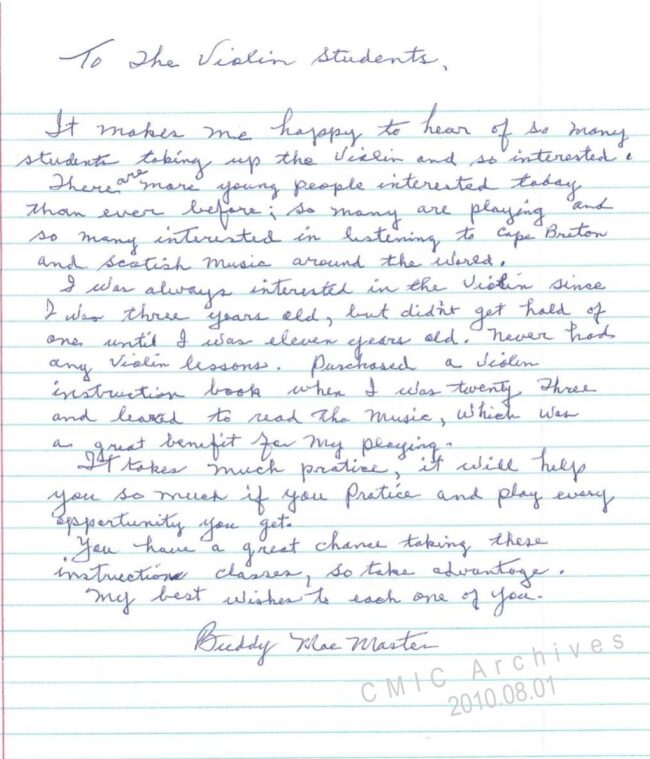 To The Violin Students,
It makes me happy to hear of so many
students taking up the Violin and so interested.
There are more young people interested today
than ever before; so many are playing and
so many interested in listening to Cape Breton
and Scotish Music around the World.
I was always interested in the Violin since
I was three years old, but didn't get hold of
one until I was eleven years old. Never had
any Violin lessons. Purchased a Violin
instruction book when I was twenty three
and leared to read the Music, which was
a great benefit for my playing.
It takes much pratice, it will help
you so much if you Pratice and play every
opportunity you get.
You have a great chance taking these
instruction classes, so take advantage.
My best wishes to each one of you.
Buddy MacMaster
CMIC Archives
2010.08.01